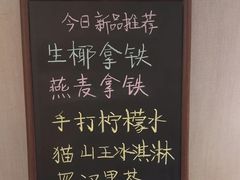 今日新品推荐
生椰拿铁
燕麦拿铁
手打柠檬水
猫山王冰淇淋
罗汉果茶